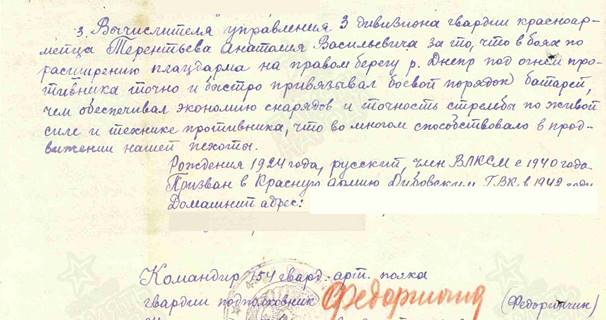 3. Вычислителя управления 3 дивизиона гвардии красноар-
мейца Терентьева Анатолия Васильевича за то, что в боях по
расширению плацдарма на правом берегу р. Днепр под огнем про-
тивника точно и быстро привязывал боевой порядок батарей,
чем обеспечивал экономию снарядов и точность стрельбы по живой
силе и технике противника, что во многом способствовало в прод-
вижении нашей пехоты.
Рождения 1924 года, русский, член ВЛКСМ с 1940 года.
Призван в Красную армию ГВК в 1942 году
Домашний адрес:
Командир 154 гвард. арт. полка
гвардии подполковник Федоринчик (Федоринчик)